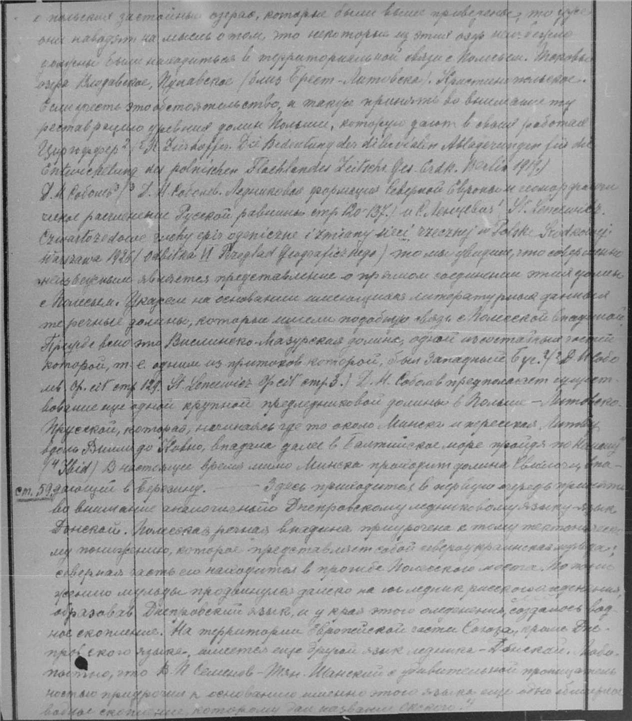 о польских застойных озерах, которые были выше приведены, то уже
они наводят на мысль о том, что некоторые из этих озер
должны были находиться в территориальной связи с Полесьем. Таковы
озера Влодавское, (близ Брест-Литовска).
Если учесть это обстоятельство, а также принять во внимание ту
реставрацию древних долин Польши, которую дают в своих работах
Циргоффер (St. Zierhoffer. Die Bedeutung der diluvialen Ablagerungen für die
Entwickelung des polnischen Flachlandes Zeitschr. Ges. Erdk. Berlin
Д. Н. Соболь Д. Н. Соболев. Ледниковая формация Северной Европы и геоморфологи
ческое расчленение Русской равнины стр 120-137.) и С. Ленцевич St. Lencewicz.
Czwartorzędowe ruchy epirogeniczne i zmiany sieci rzecznej w Polsce Środkowej
Warszawa 1926 odbitka Przegląd Geograficznego) то мы увидим, что совершенно
является представление о прямом соединении этих долин
с Полесьем. Укажем на основании имеющихся литературных данных
те речные долины, которые имели подобную связь с Полесской впадиной.
Прежде всего это Вислинско-Мазурская долина, одной из составных частей
которой, т. е. одним из притоков которой, был Западный Буг. Д. Н. Собо
левъ Op. cit стр 129. St. Lencewicz Op cit стр 3.) Д. Н. Соболев предполагает сущест
вование еще одной крупной предледниковой долины в Польше - Литовско-
Прусской, которая, начинаясь где то около Минска и пересекая Литву,
вдоль Вилии до Ковно, впадала далее в Балтийское море пройдя по Неману
Ibid) В настоящее время мимо Минска проходит долина Свислочи, впа-
ст. 59. дающей в Березину. — Здесь приходится в первую очередь принять
во внимание аналогичный Днепровскому ледниковому языку язык
Донской. Полесская речная впадина приурочена к тому тектоническо
му понижению, которое представляет собой северо-украинская мульда;
северная часть его находится в прогибе Полесского моста. По пони
жению мульды продвинулся далеко на юг ледник рисского оледенения,
образовав Днепровский язык, и у края этого оледенения создалось вод
ное скопление. На территории Европейской части Союза, кроме Днеп
ровского языка, имеется еще другой язык ледника - Донской.
что В. П. Семенов-Тян-Шанский с удивительной проницатель
ностью приурочил к основанию именно этого языка еще одно обширное
водное скопление, которому дал название